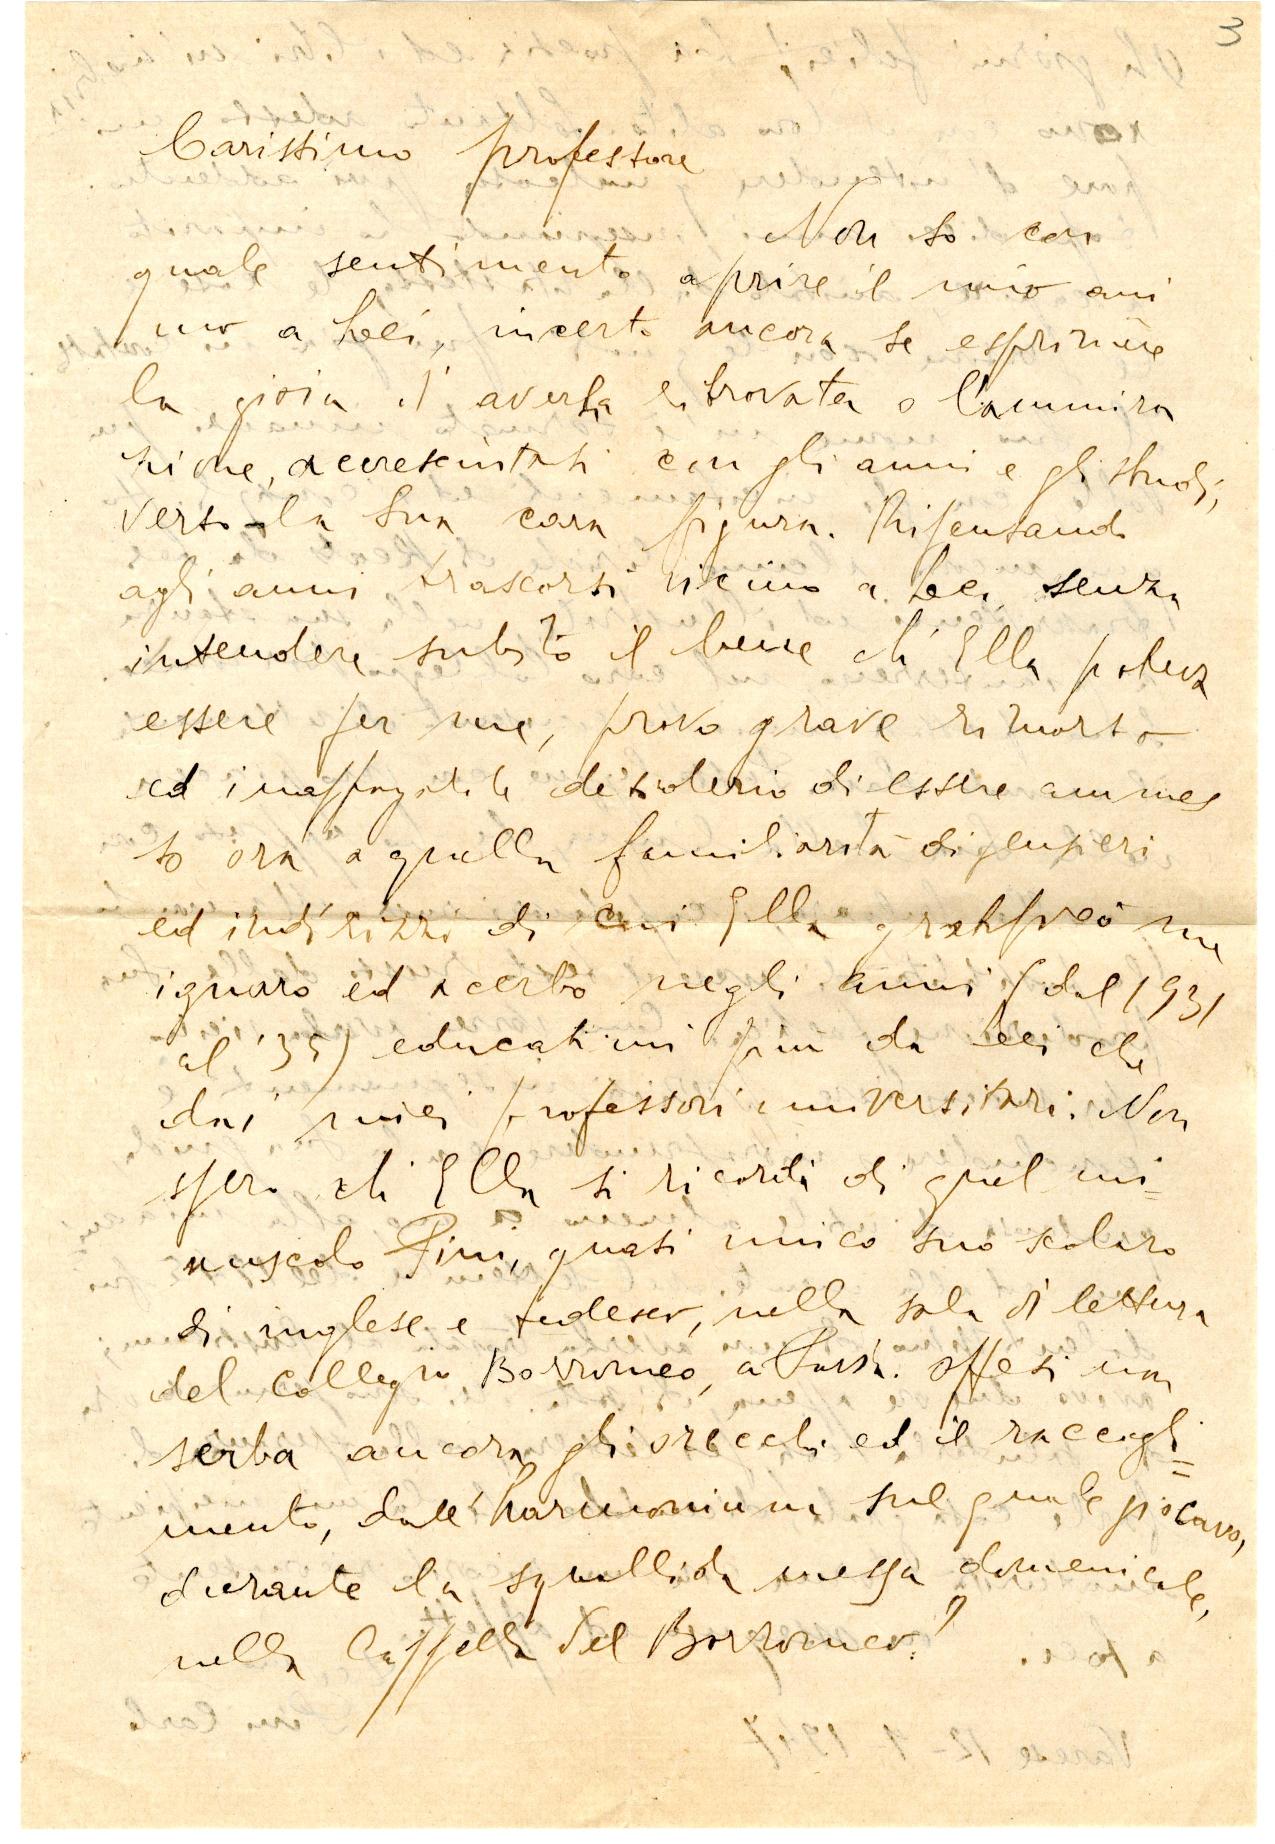 3
Carissimo professore
Non so con
quale sentimento aprire il mio ani
mo a Lei, incerto ancora se esprimere
la gioia d'averLa ritrovata o l'ammira
zione, accresciutasi con gli anni e gli studi,
verso la Sua cara figura. Ripensando
agli anni trascorsi vicino a Lei senza
intendere subito il bene ch'Ella poteva
essere per me, provo grave rimorso
ed inappagabile desiderio di essere ammes
so ora a quella familiarità di pensieri
ed indirizzi di cui Ella gratificò me
ignaro ed acerbo negli anni (dal 1931
al '35) educatimi più da Lei che
dai miei professori universitari. Non
spero ch'Ella si ricordi di quel mi=
nuscolo Pini, quasi unico suo scolaro
di inglese e tedesco, nella sala di lettura
del collegio Borromeo, a Pavia. Offesi non
serba ancora gli orecchi ed il raccogli=
mento, dall'harmonium sul quale giocavo,
durante la squallida messa domenicale,
nella Cappella del Borromeo?